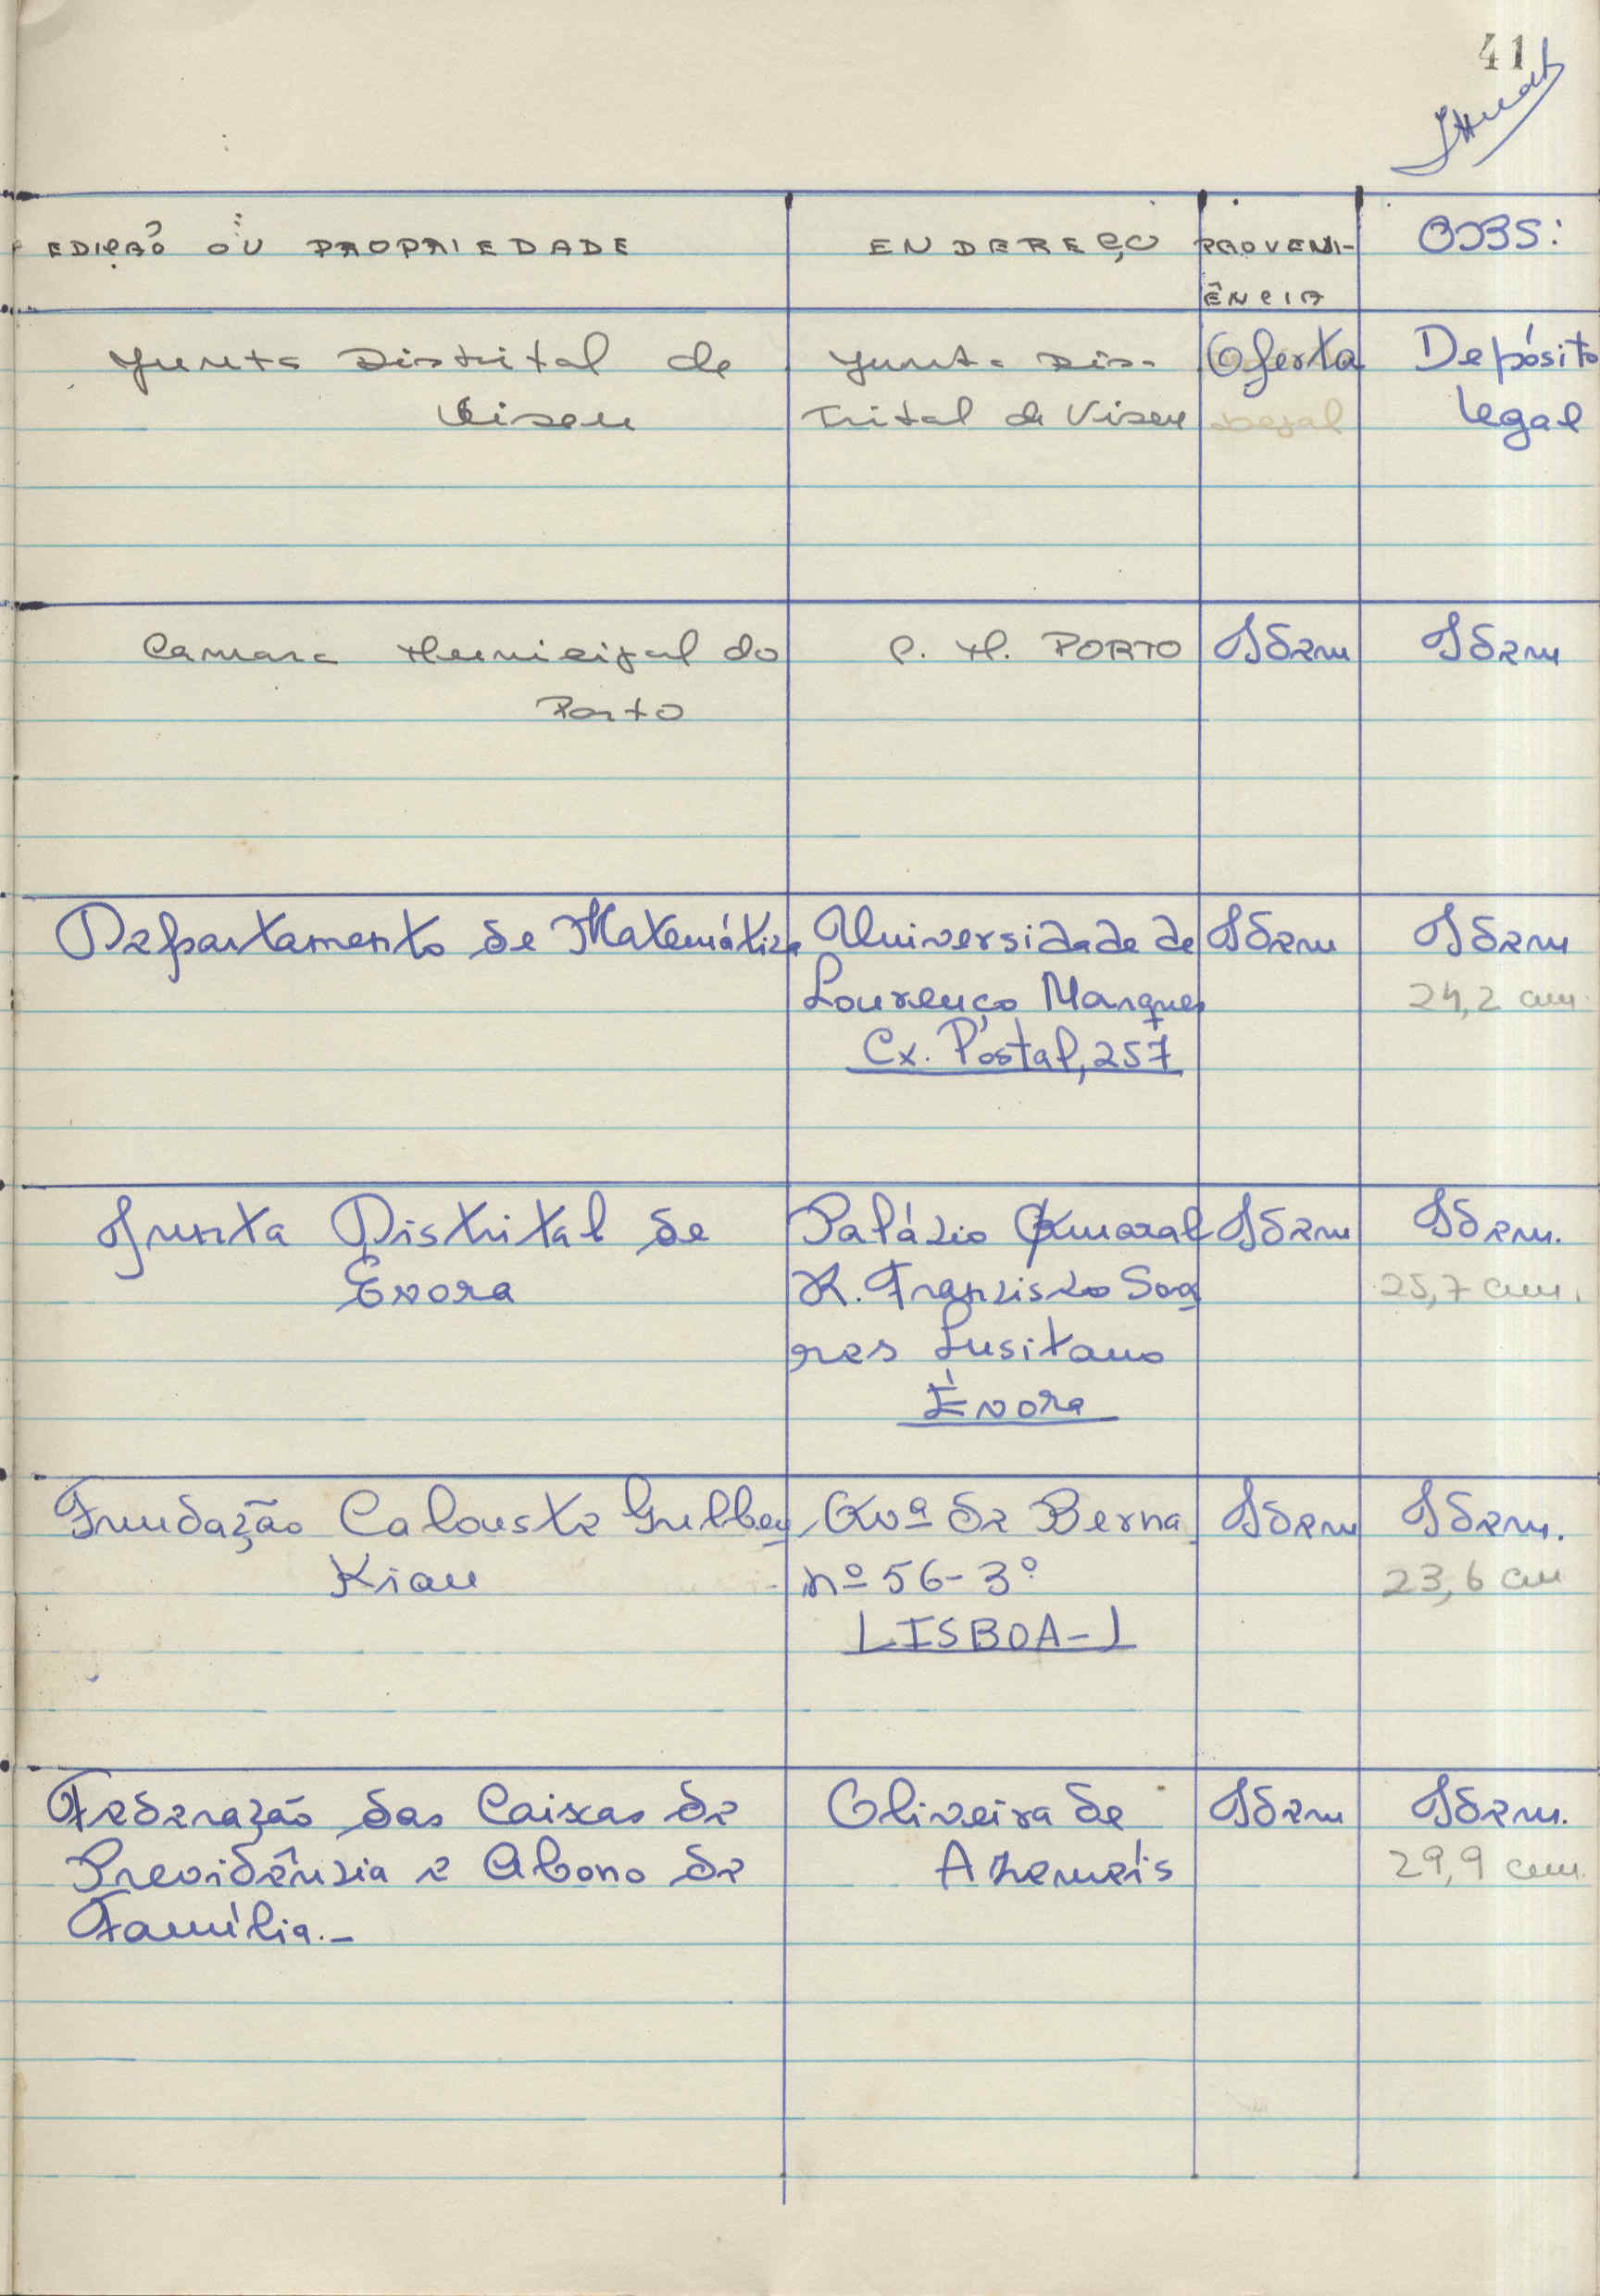 41
EDIÇÃO OU PROPRIEDADE
ENDEREÇO
PROVENI-
ÊNCIA
OBS:
Junta Distrital de
Viseu
Junta Dis-
trital de Viseu
Oferta
Legal
Depósito
Legal
Camara Municipal do
Porto
C. M. PORTO
Idem
Idem
Departamento de Matemática
Universidade de
Lourenço Marques
Cx. Postal, 257
Idem
Idem
24,2 cm.
Junta Distrital de
Evora
Palácio Amaral
R. Francisco Soa
res Lusitano
Évora
Idem
Idem.
25,7 cm.
Fundação Calouste Gulben
Kian
Avª de Berna
nº 56-3º
LISBOA-1
Idem
Idem.
23,6 cm
Federação das Caixas de
Previdência e Abono de
Família.-
Oliveira de
Azemeís
Idem
Idem.
29,9 cm.